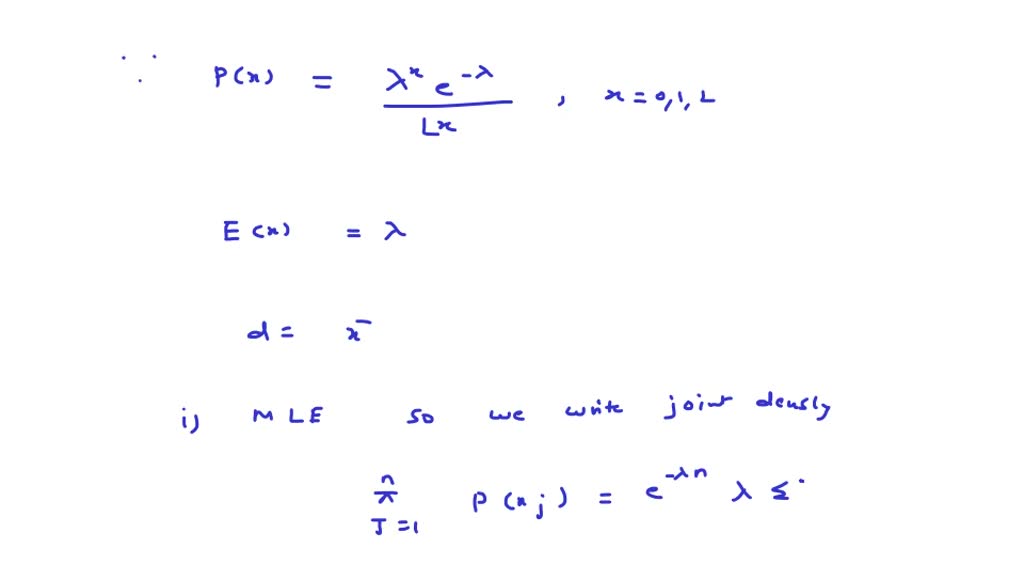 ∵ P(x) = λ^x e^{-λ} / ⌊x , x = 0, 1, 2
E(x) = λ
d = x̄
i) MLE so we write joint densly
n
π P(x_j) = e^{-λn} λ Σ
J=1